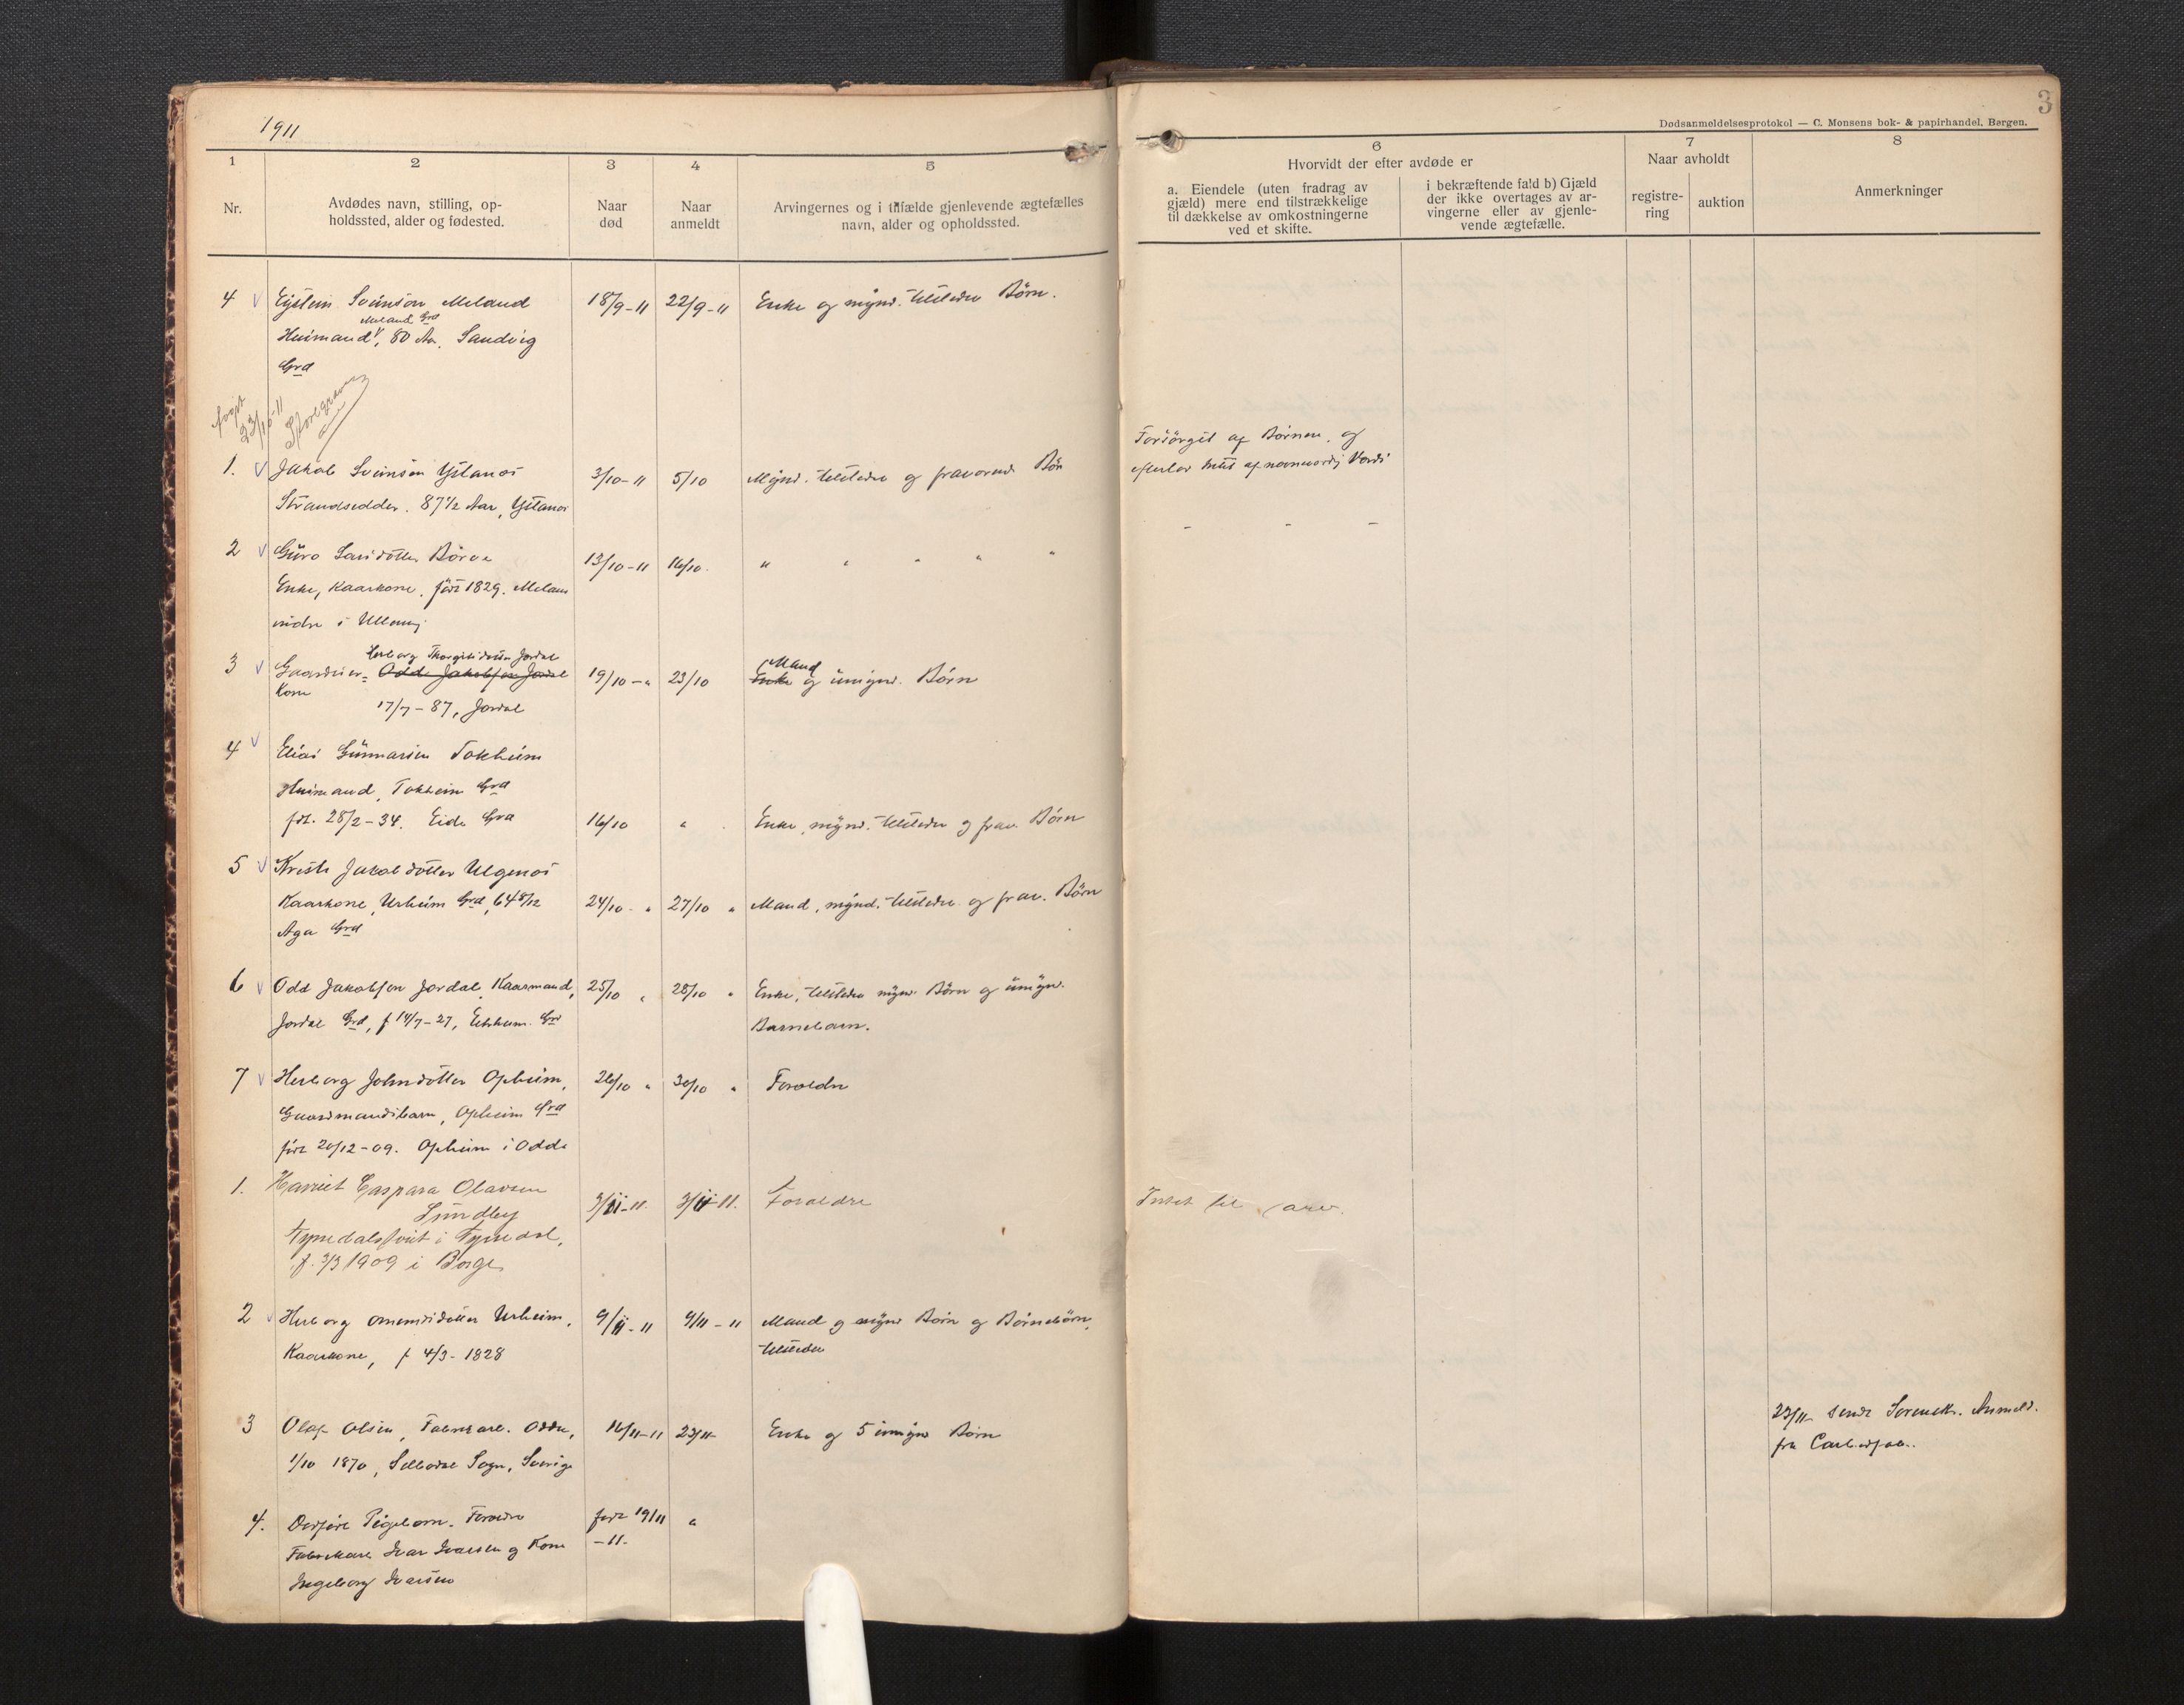 1911
3
Dødsanmeldelsesprotokol — C. Monsens bok- & papirhandel, Bergen.
1
2
3
4
5
6
7
8
Nr.
Avdødes navn, stilling, op-
holdssted, alder og fødested.
Naar
død
Naar
anmeldt
Arvingernes og i tilfælde gjenlevende ægtefælles
navn, alder og opholdssted.
Hvorvidt der efter avdøde er
a. Eiendele (uten fradrag av
gjæld) mere end tilstrækkelige
til dækkelse av omkostningerne
ved et skifte.
i bekræftende fald b) Gjæld
der ikke overtages av ar-
vingerne eller av gjenle-
vende ægtefælle.
Naar avholdt
registre-
ring
auktion
Anmerkninger
4 Eystein Sveinson Meland
Meland Grd
Huusmand, 80 Aar, Sandvig
Grd
18/9-11 22/9-11 Enke og mynd. tilstede Børn.
23/10-11
1. Jakob Sveinsen Ystanes
Strandsedder. 87 1/2 Aar, Ystanes
3/10-11 5/10 Mynd. tilstede og fraværend Børn
Forsørget af Børnene, og
efterlod intet af nævneværdig Værdi
2 Guro Larsdotter Børve
Enke, Kaarkone, født 1829. Meland
indre i Ullensv.
13/10-11 16/10. " " " " "
- - -
3 Gaardbrier=
Kone
Herborg Thorgilsdotter Jordal
Odd Jakobsen Jordal
17/7-87, Jordal
19/10-" 23/10 Enke Mand og umynd. Børn
4 Elias Gunnarsen Tokheim
Huusmand, Tokheim Grd
fdt. 28/2-34. Eide Grd
16/10 " Enke, mynd. tilstede og frav. Børn
5 Kristi Jakobdotter Ulgenes
Kaarkone, Urheim Grd, 64 8/12
Aga Grd
24/10 " 27/10 " Mand, mynd. tilstede og frav. Børn
6 Odd Jakobsen Jordal, Kaarmand,
Jordal Grd, f 14/7-27, Grd
25/10 " 28/10 " Enke, tilstede mynd. Børn og umynd.
Barnebarn.
7 Herborg Johnsdotter Opheim,
Gaardmandsbarn, Opheim Grd
født 20/12-09. Opheim i Odda
26/10 " 30/10 " Forældre
1. Harriet Caspara Olavsen
Sundby
i Tyssedal,
f. 3/3 1909 i Borge
3/11-11. 3/11-11. Forældre
Intet til arv.
2 Herborg Omundsdotter Urheim,
Kaarkone, f 4/3-1828
9/11-11 9/11-11 Mand og mynd Børn og Børnebørn,
tilstede
3 Olaf Olsen, Fabrikarb. Odda,
1/10 1870, Sogn, Sverige
16/11-11 23/11 Enke og 5 umynd Børn
23/11 sendt Sorensk. Anmeld.
fra Carbidfab.
4. Dødfødt Pigebarn. Forældre
Fabrikarb. Ivar Ivarsen og Kone
Ingeborg Ivarsen
født 19/11
-11. "